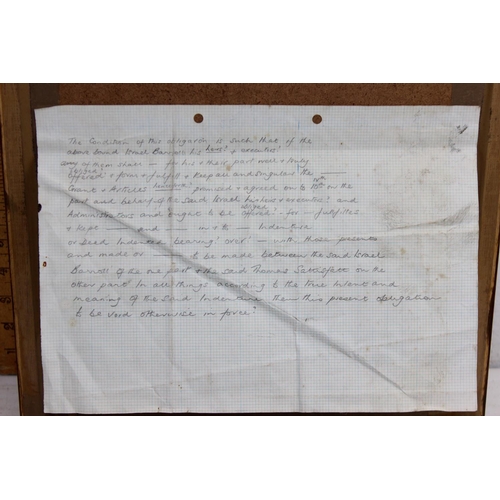 The Condition of this obligation is such that if the
above bound Israel Barrows his heirs? & executors?
any of them shall — for his & their part well & truly
offered & pform & fulfill & keep all and singular the
Grant & Articles promised & agreed on to on the
part and behalf of the said Israel his heirs & executors? and
Administrators and ought to be offered? – for – fulfilled
& kept — and — in & b — Indenture
or Deed Indented bearing? over? — with these presents
and made or — to be made between the said Israel
Barrows of the one part & the said Thomas Satterfett on the
other part? In all things according to the true intent and
meaning of the said Indenture then this present obligation
to be void otherwise in force?